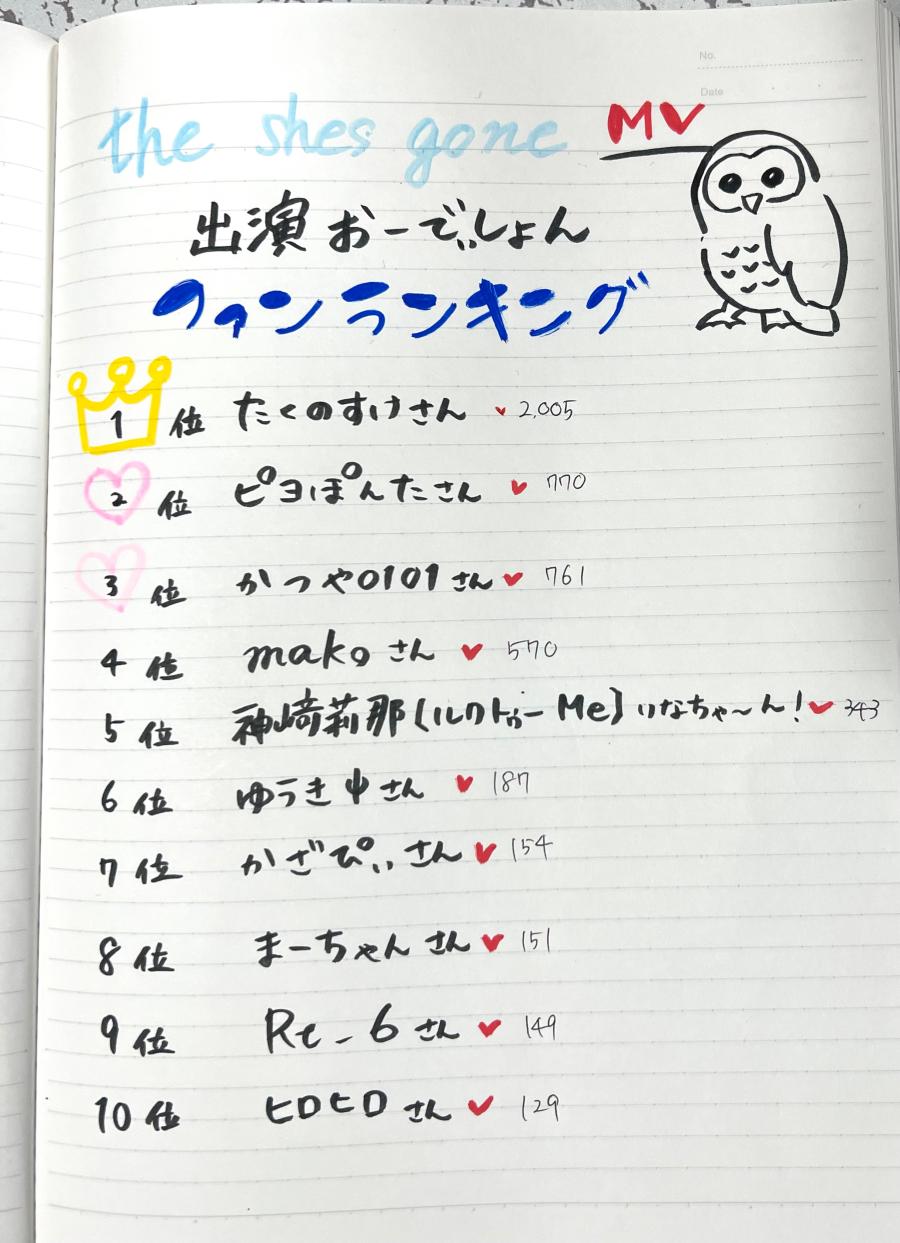 No.
Date
the shes gone MV
出演おーでぃしょん
ファンランキング
1位 たくのすけさん ♥ 2,005
2位 ピヨぽんたさん ♥ 770
3位 かつや0101さん ♥ 761
4位 makoさん ♥ 570
5位 神崎莉那(ルクトゥーMe)りなちゃ〜ん! ♥ 343
6位 ゆうき中さん ♥ 187
7位 かざぴぃさん ♥ 154
8位 まーちゃんさん ♥ 151
9位 Re_6さん ♥ 149
10位 ヒロヒロさん ♥ 129